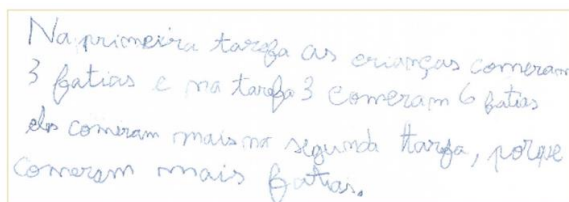 Na primeira tarefa as crianças comeram
3 fatias e na tarefa 3 comeram 6 fatias
eles comeram mais na segunda tarefa, porque
comeram mais fatias.